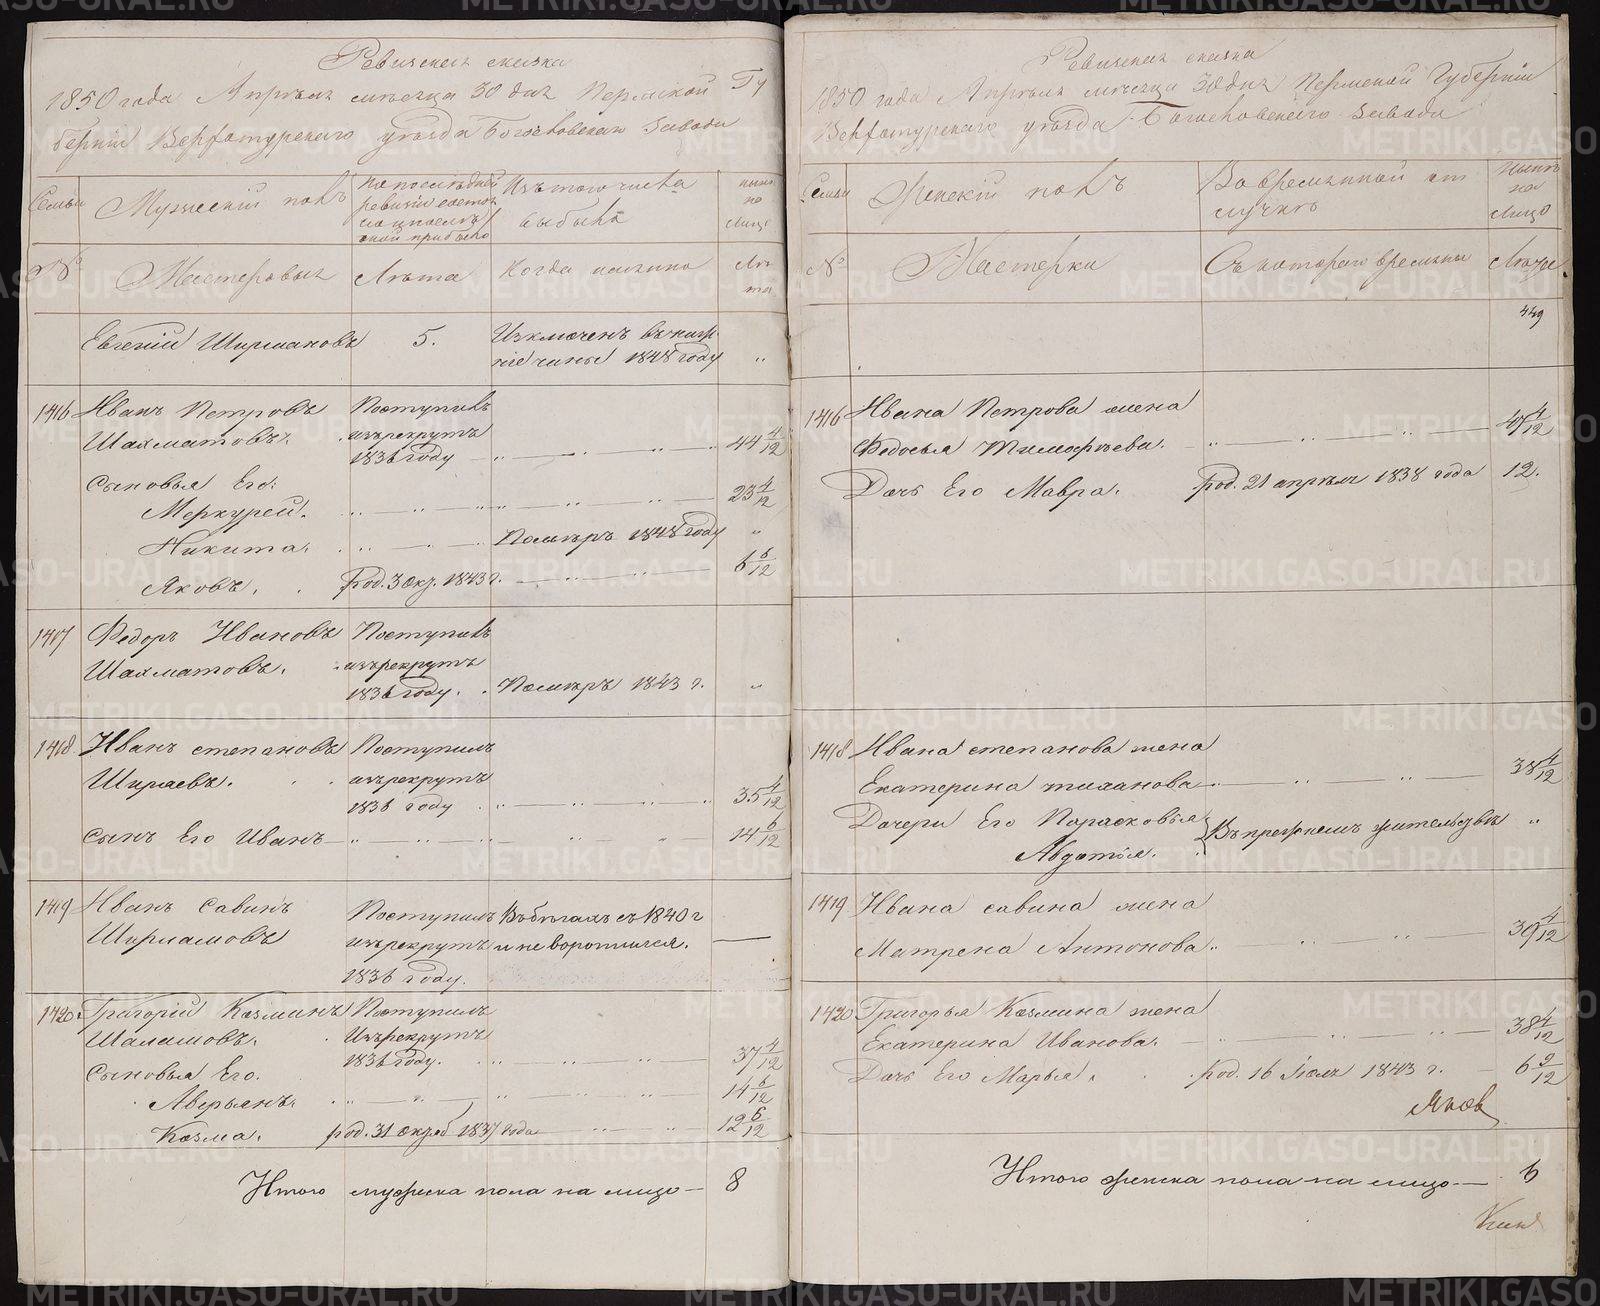 Ревизская сказка
1850 года Апреля месяца 30 дня Пермской Гу
берніи Верхотурскаго уезда Богословскаго завода
Семьи
Мужескій полъ
По последней
ревизіи состоя
ло и после
оной прибыло
Изъ того числа
выбыло
ныне
на
лицо
№
Мастеровыхъ
Лета
Когда именно
Ле
та
Евгеній Ширмановъ 5. Изключенъ въ нижн
ніе чины 1848 году „
1416 Иванъ Петровъ Поступилъ
Шахматовъ. изъ рекрутъ
1836 году 44 4/12
Сыновья Его:
Меркурей. 23 4/12
Никита. Померъ 1848 году „
Яковъ. род. 3 окт. 1843 г. 6 6/12
1417 Федоръ Ивановъ Поступилъ
Шахматовъ. изъ рекрутъ
1836 году. Померъ 1843 г. „
1418 Иванъ степановъ Поступилъ
Ширяевъ. изъ рекрутъ
1836 году 35 4/12
сынъ Его Иванъ 14 6/12
1419 Иванъ Савинъ Поступилъ Въ бегахъ съ 1840 г
изъ рекрутъ и не воротился.
1836 году.
1420 Григорій Козминъ Поступилъ
Шалашовъ. Изъ рекрутъ
1836 году. 37 4/12
Сыновья Его.
Аверьянъ. 14 6/12
Козма. род. 31 октяб 1837 года 12 6/12
Итого мужеска пола на лицо 8
Ревизская сказка
1850 года Апреля месяца 30 дня Пермской Губерніи
Верхотурскаго уезда Богословскаго завода
Семьи
Женскій полъ
Во временной от
лучке
Ныне
на
Лицо
№
Мастерки
Съ котораго времени
Лета
449
1416 Ивана Петрова жена
Федосья Тимофеева. 47 4/12
Дочь Его Мавра. род. 21 апреля 1838 года 12.
1418 Ивана степанова жена
Екатерина 38 4/12
Дочери Его Парасковья
Авдотья. Въ прежнемъ жительстве „
1419 Ивана савина жена
Матрена Антонова 39 4/12
1420 Григорья Козмина жена
Екатерина Иванова. 38 4/12
Дочь Его Марья. род. 16 Іюля 1843 г. 6 9/12
Яков
Итого женска пола на лицо 6
METRIKI.GASO-URAL.RU